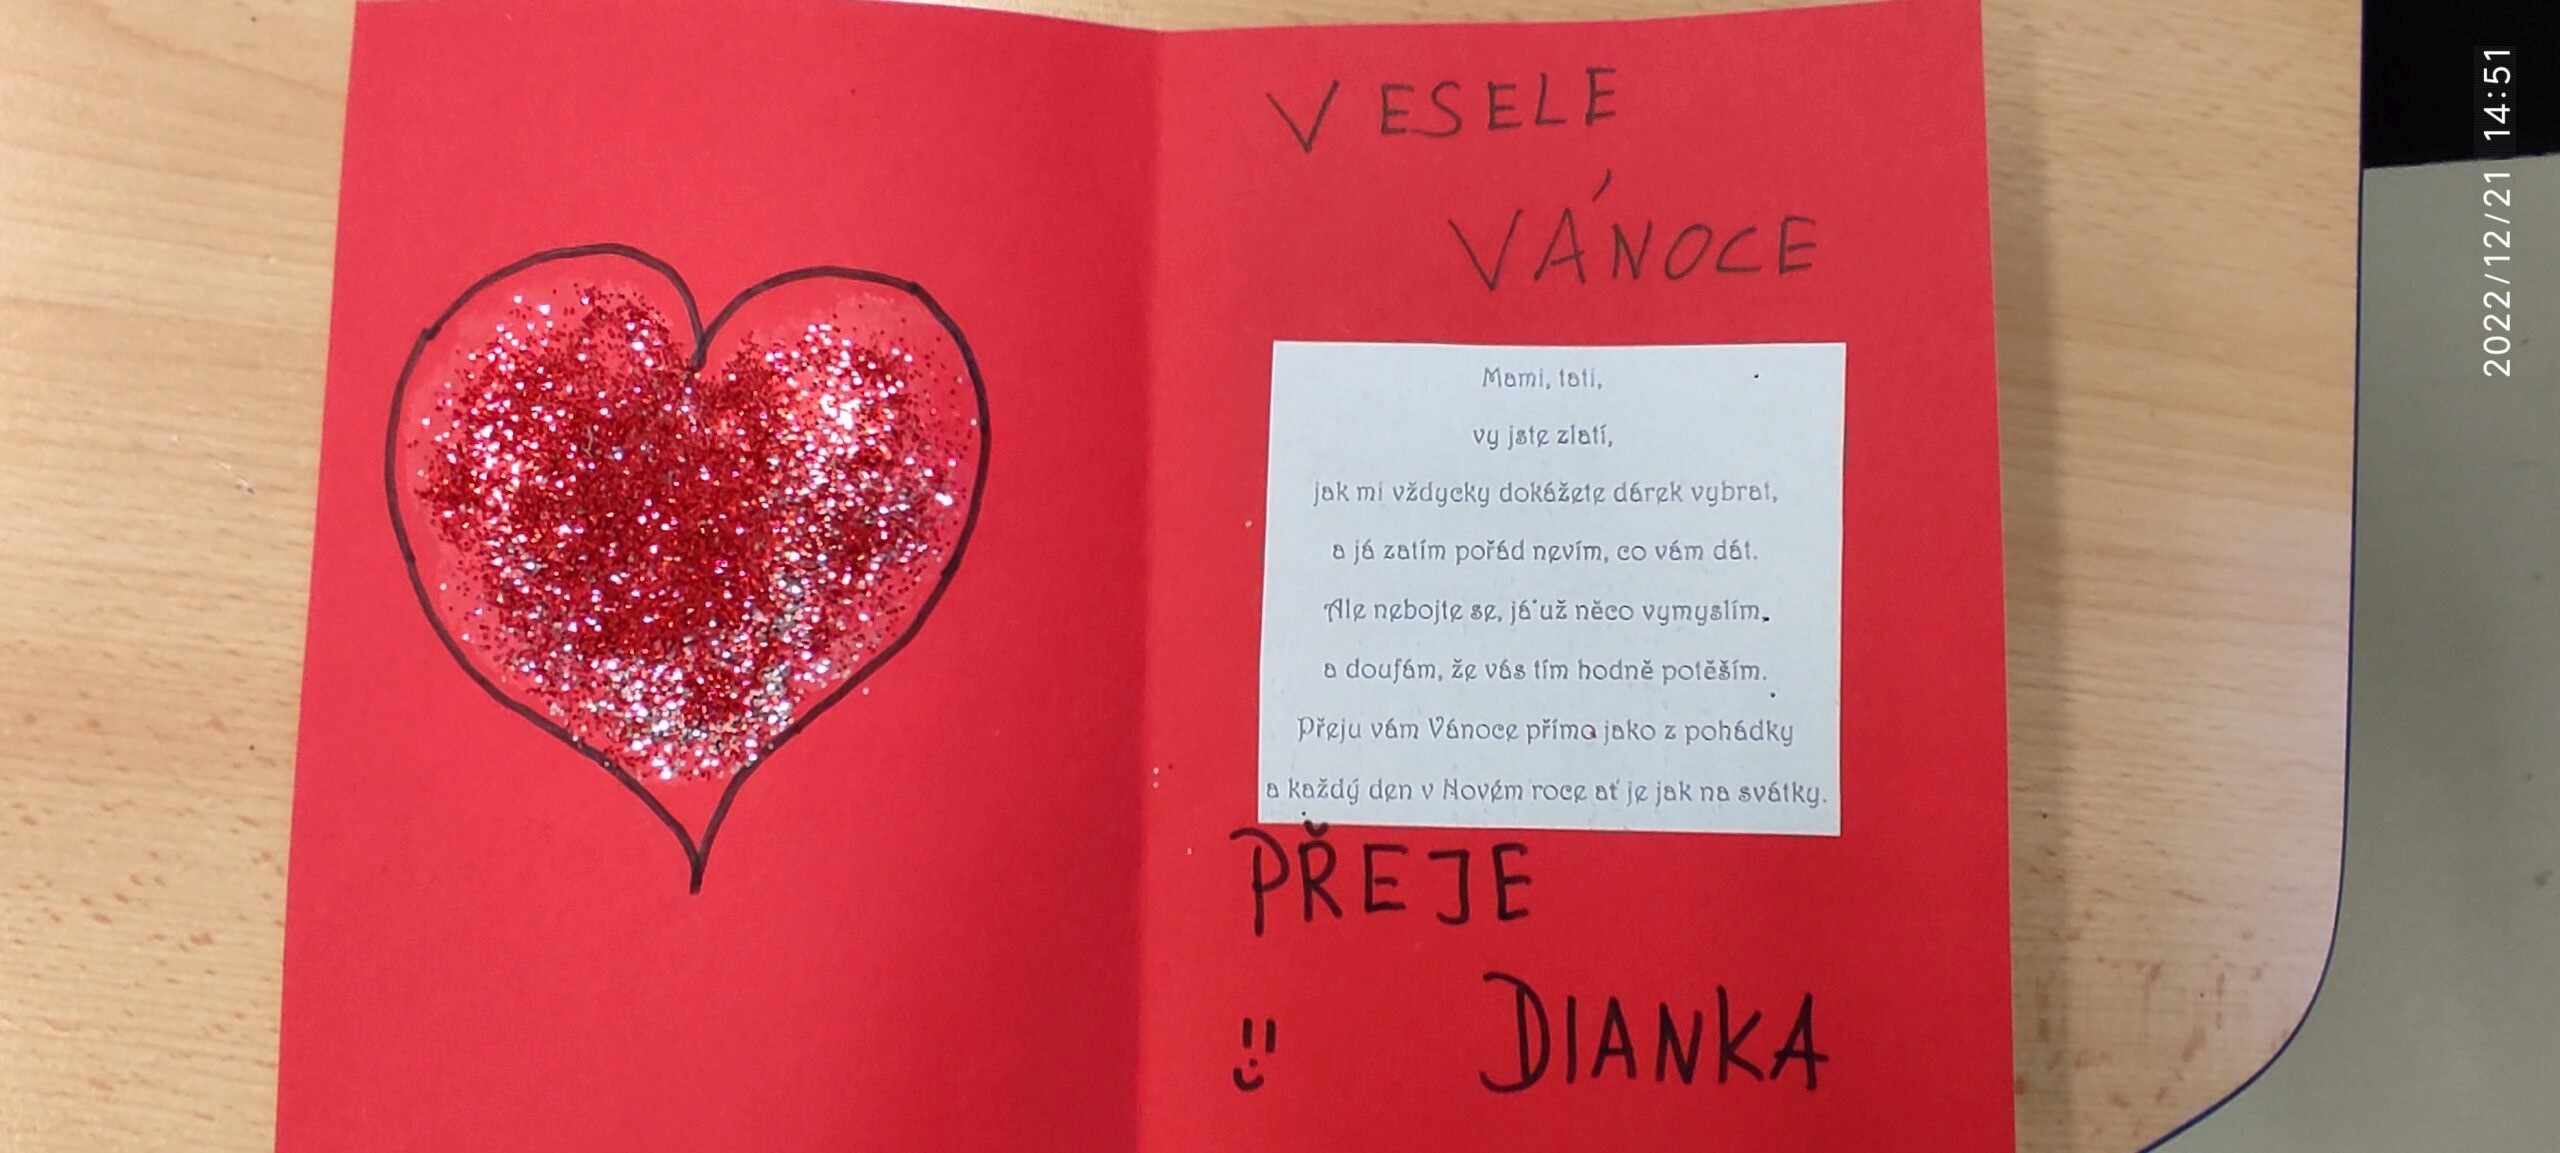 VESELE
VÁNOCE
Mami, tati,
vy jste zlatí,
jak mi vždycky dokážete dárek vybrat,
a já zatím pořád nevím, co vám dát.
Ale nebojte se, já už něco vymyslím,
a doufám, že vás tím hodně potěším.
Přeju vám Vánoce přímo jako z pohádky
a každý den v Novém roce ať je jak na svátky.
PŘEJE
DIANKA
2022/12/21 14:51